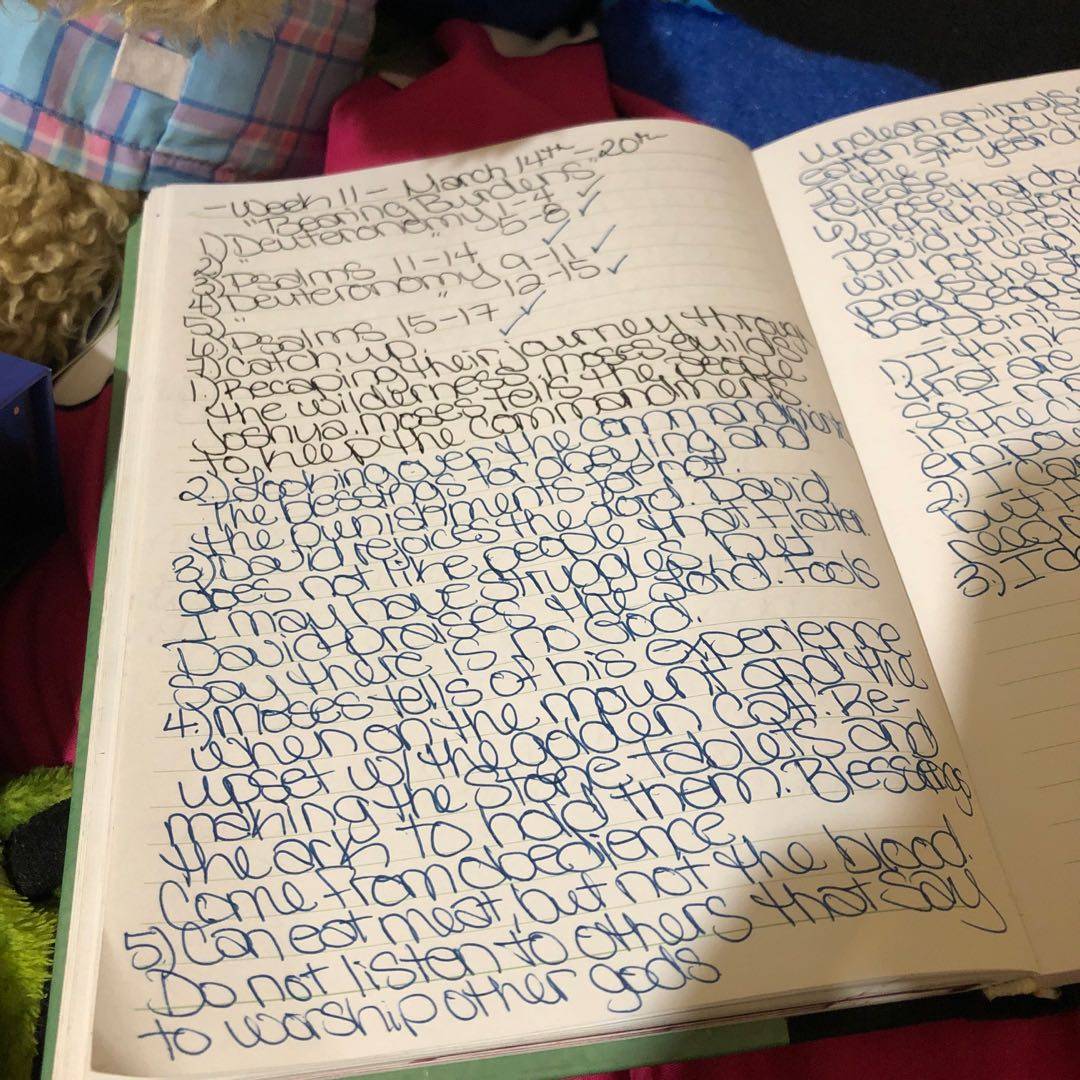 - Week 11 - March 14th - 20th
"Bearing Burdens"
1) Deuteronomy 1-4 ✓
2) " 5-8 ✓
3) Psalms 11-14 ✓
4) Deuteronomy 9-11 ✓
5) " 12-15 ✓
6) Psalms 15-17 ✓
7) Catch up ✓
1) Recaping their journey through
the wilderness. Moses guilds
Joshua. Moses tells the people
to keep the commandments
2) Looking over the commandments
the blessings for obeying and
the punishments for not.
3) David rejaces the Lord. David
does not like people that flatter.
I may have struggles, but
David praises the Lord. Fools
say there is no God.
4) Moses tells of his experience
when on the mount and the
upset w/ the golden calf. Re-
making the stone tablets and
the ark to hold them. Blessings
come from obedience
5) Can eat meat, but not the blood.
Do not listen to others that say
to worship other gods
unclean animals
eaten and you
In the 7th year
release
Those that do
David will
will not
pray
bad
- Doin
1) I think
that are
so
in the
2) I can
but
need
3) I do